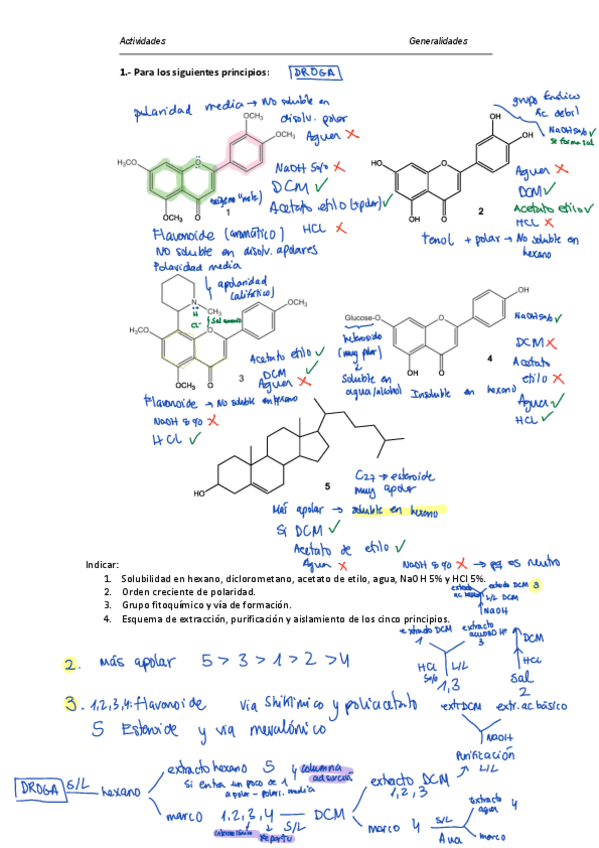 Actividades
Generalidades
1.- Para los siguientes principios:
DROGA
polaridad media → No soluble en
disolv. polar
Agua X
NaOH 5% X
DCM ✓
Acetato etilo (apolar) ✓
HCL X
OCH₃
OCH₃
H₃CO
OCH₃
O
O
1
Flavonoide (aromático)
No soluble en disolv. apolares
Polaridad media
grupo fenólico
Ác. debil
NaOH 5% ✓
Se forma sal
Agua X
DCM ✓
Acetato etilo ✓
HCL X
OH
OH
HO
OH
O
O
2
fenol + polar → No soluble en
hexano
apolaridad
(alifático)
N
CH₃
H
Cl⁻
OCH₃
H₃CO
OCH₃
O
O
3
Acetato etilo ✓
DCM ✓
Agua X
Flavonoide → No soluble en hexano
NaOH 5% X
HCL ✓
OH
Glucose-O
OH
O
O
4
heterósido
(muy polar)
Soluble en
agua/alcohol
Insoluble en hexano
NaOH 5% ✓
DCM X
Acetato
etilo X
Agua ✓
HCL ✓
HO
5
C27 → esteroide
muy apolar
Más apolar → soluble en hexano
Si DCM ✓
Acetato de etilo ✓
Agua X
NaOH 5% X → pq es neutro
Indicar:
1. Solubilidad en hexano, diclorometano, acetato de etilo, agua, NaOH 5% y HCl 5%.
2. Orden creciente de polaridad.
3. Grupo fitoquímico y vía de formación.
4. Esquema de extracción, purificación y aislamiento de los cinco principios.
DCM 3
L/L
NaOH
extracto DCM
1
extracto
3
HCl
5%
L/L
1,3
DCM
HCl
sal
2
extr DCM
extr. ac básico
NaOH
Purificación
L/L
2. más apolar 5 > 3 > 1 > 2 > 4
3. 1,2,3,4: flavonoide vía Shikímico y poliacetato
5 Esteroide y vía mevalónico
DROGA
S/L
hexano
extracto hexano 5 y columna
adsorción
Si entra un poco de 1
apolar - polari. media
marco 1,2,3,4
S/L
DCM
extracto DCM
1,2,3
marco 4
S/L
extracto
agua 4
marco